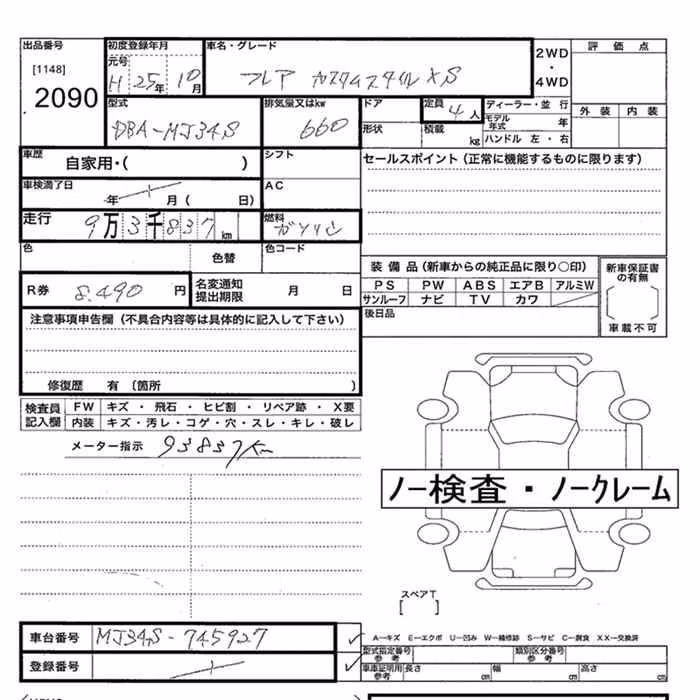 出品番号 初度登録年月 車名・グレード 2WD・4WD 評価点
[1148] 元号 H25年10月 フレア カスタムスタイルXS
2090
外装 内装
型式 排気量又はkw ドア 定員 4人 ディーラー・並行
DBA-MJ34S 660 形状 積載 kg モデル年式 年
ハンドル 左・右
車歴 自家用・( ) シフト セールスポイント(正常に機能するものに限ります)
車検満了日 年 月( 日) AC
走行 9万3千837km 燃料 ガソリン
色 色替 色コード
装備品(新車からの純正品に限り○印) 新車保証書の有無
R券 8,490円 名変通知提出期限 月 日
PS PW ABS エアB アルミW
サンルーフ ナビ TV カワ
後日品 車載不可
注意事項申告欄(不具合内容等は具体的に記入して下さい)
修復歴 有 (箇所 )
検査員記入欄 FW キズ・飛石・ヒビ割・リペア跡・X要
内装 キズ・汚レ・コゲ・穴・スレ・キレ・破レ
メーター指示 93837Km
ノー検査・ノークレーム
スペアT
[ ]
車台番号 MJ34S-745927
A-キズ E-エクボ U-凹み W-補修跡 S-サビ C-腐食 XX-交換済
登録番号
型式指定番号参考 類別区分番号参考
車庫証明用参考 長さ cm 幅 cm 高さ cm